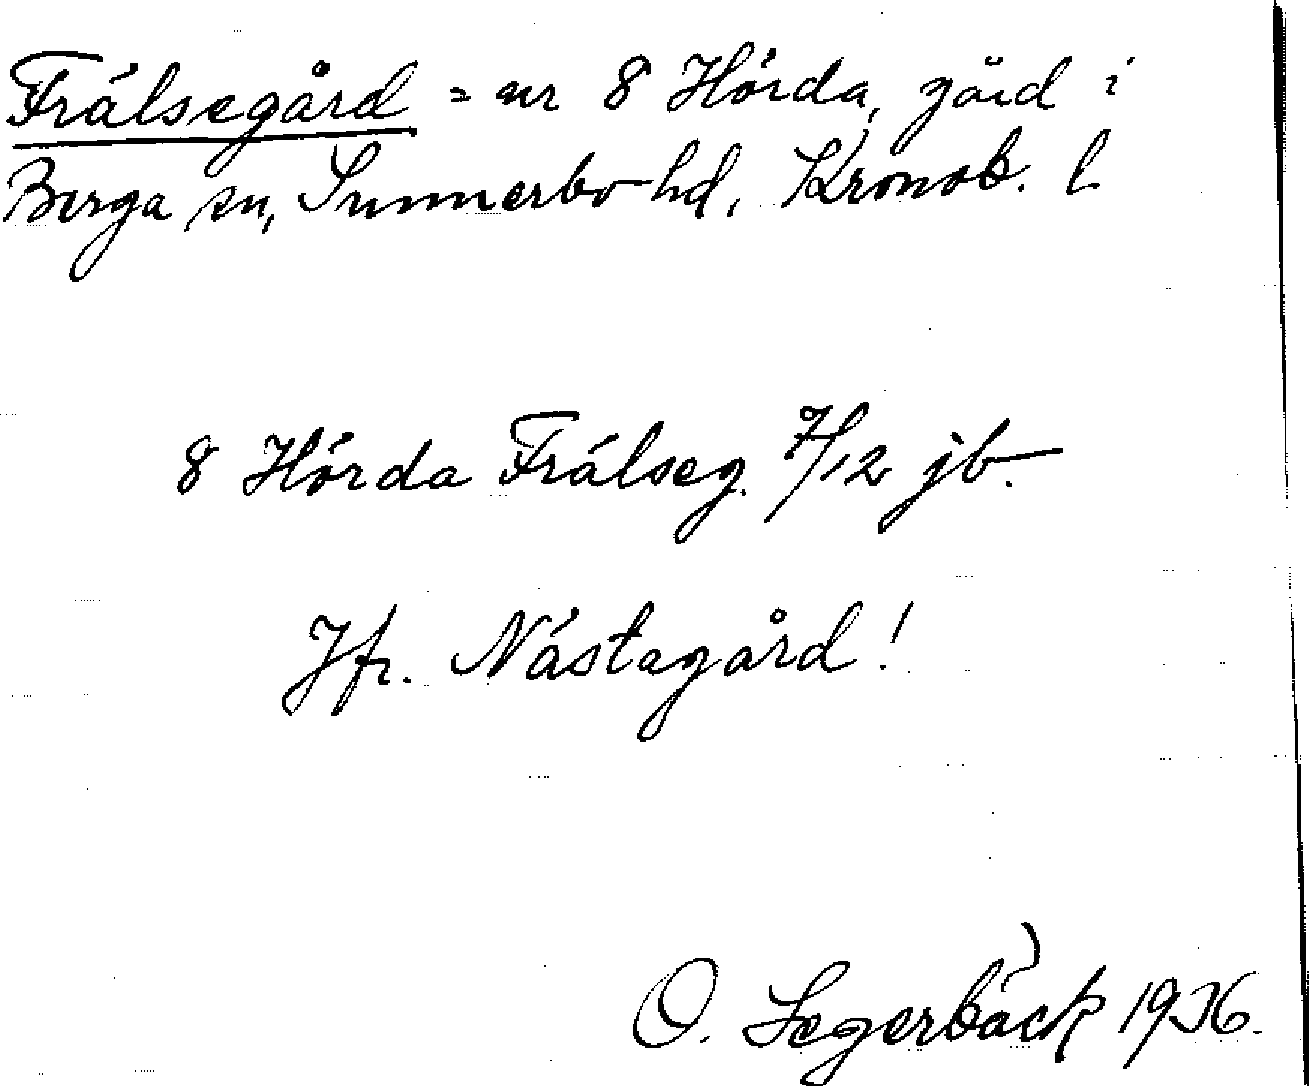 Frälsegård = nr 8 Hörda, gård i
Berga sn, Sunnerbo hd, Kronob. l.
8 Hörda Frälseg. 7/12 jb.
Jfr. Nästagård!
O. Segerbäck 1936.